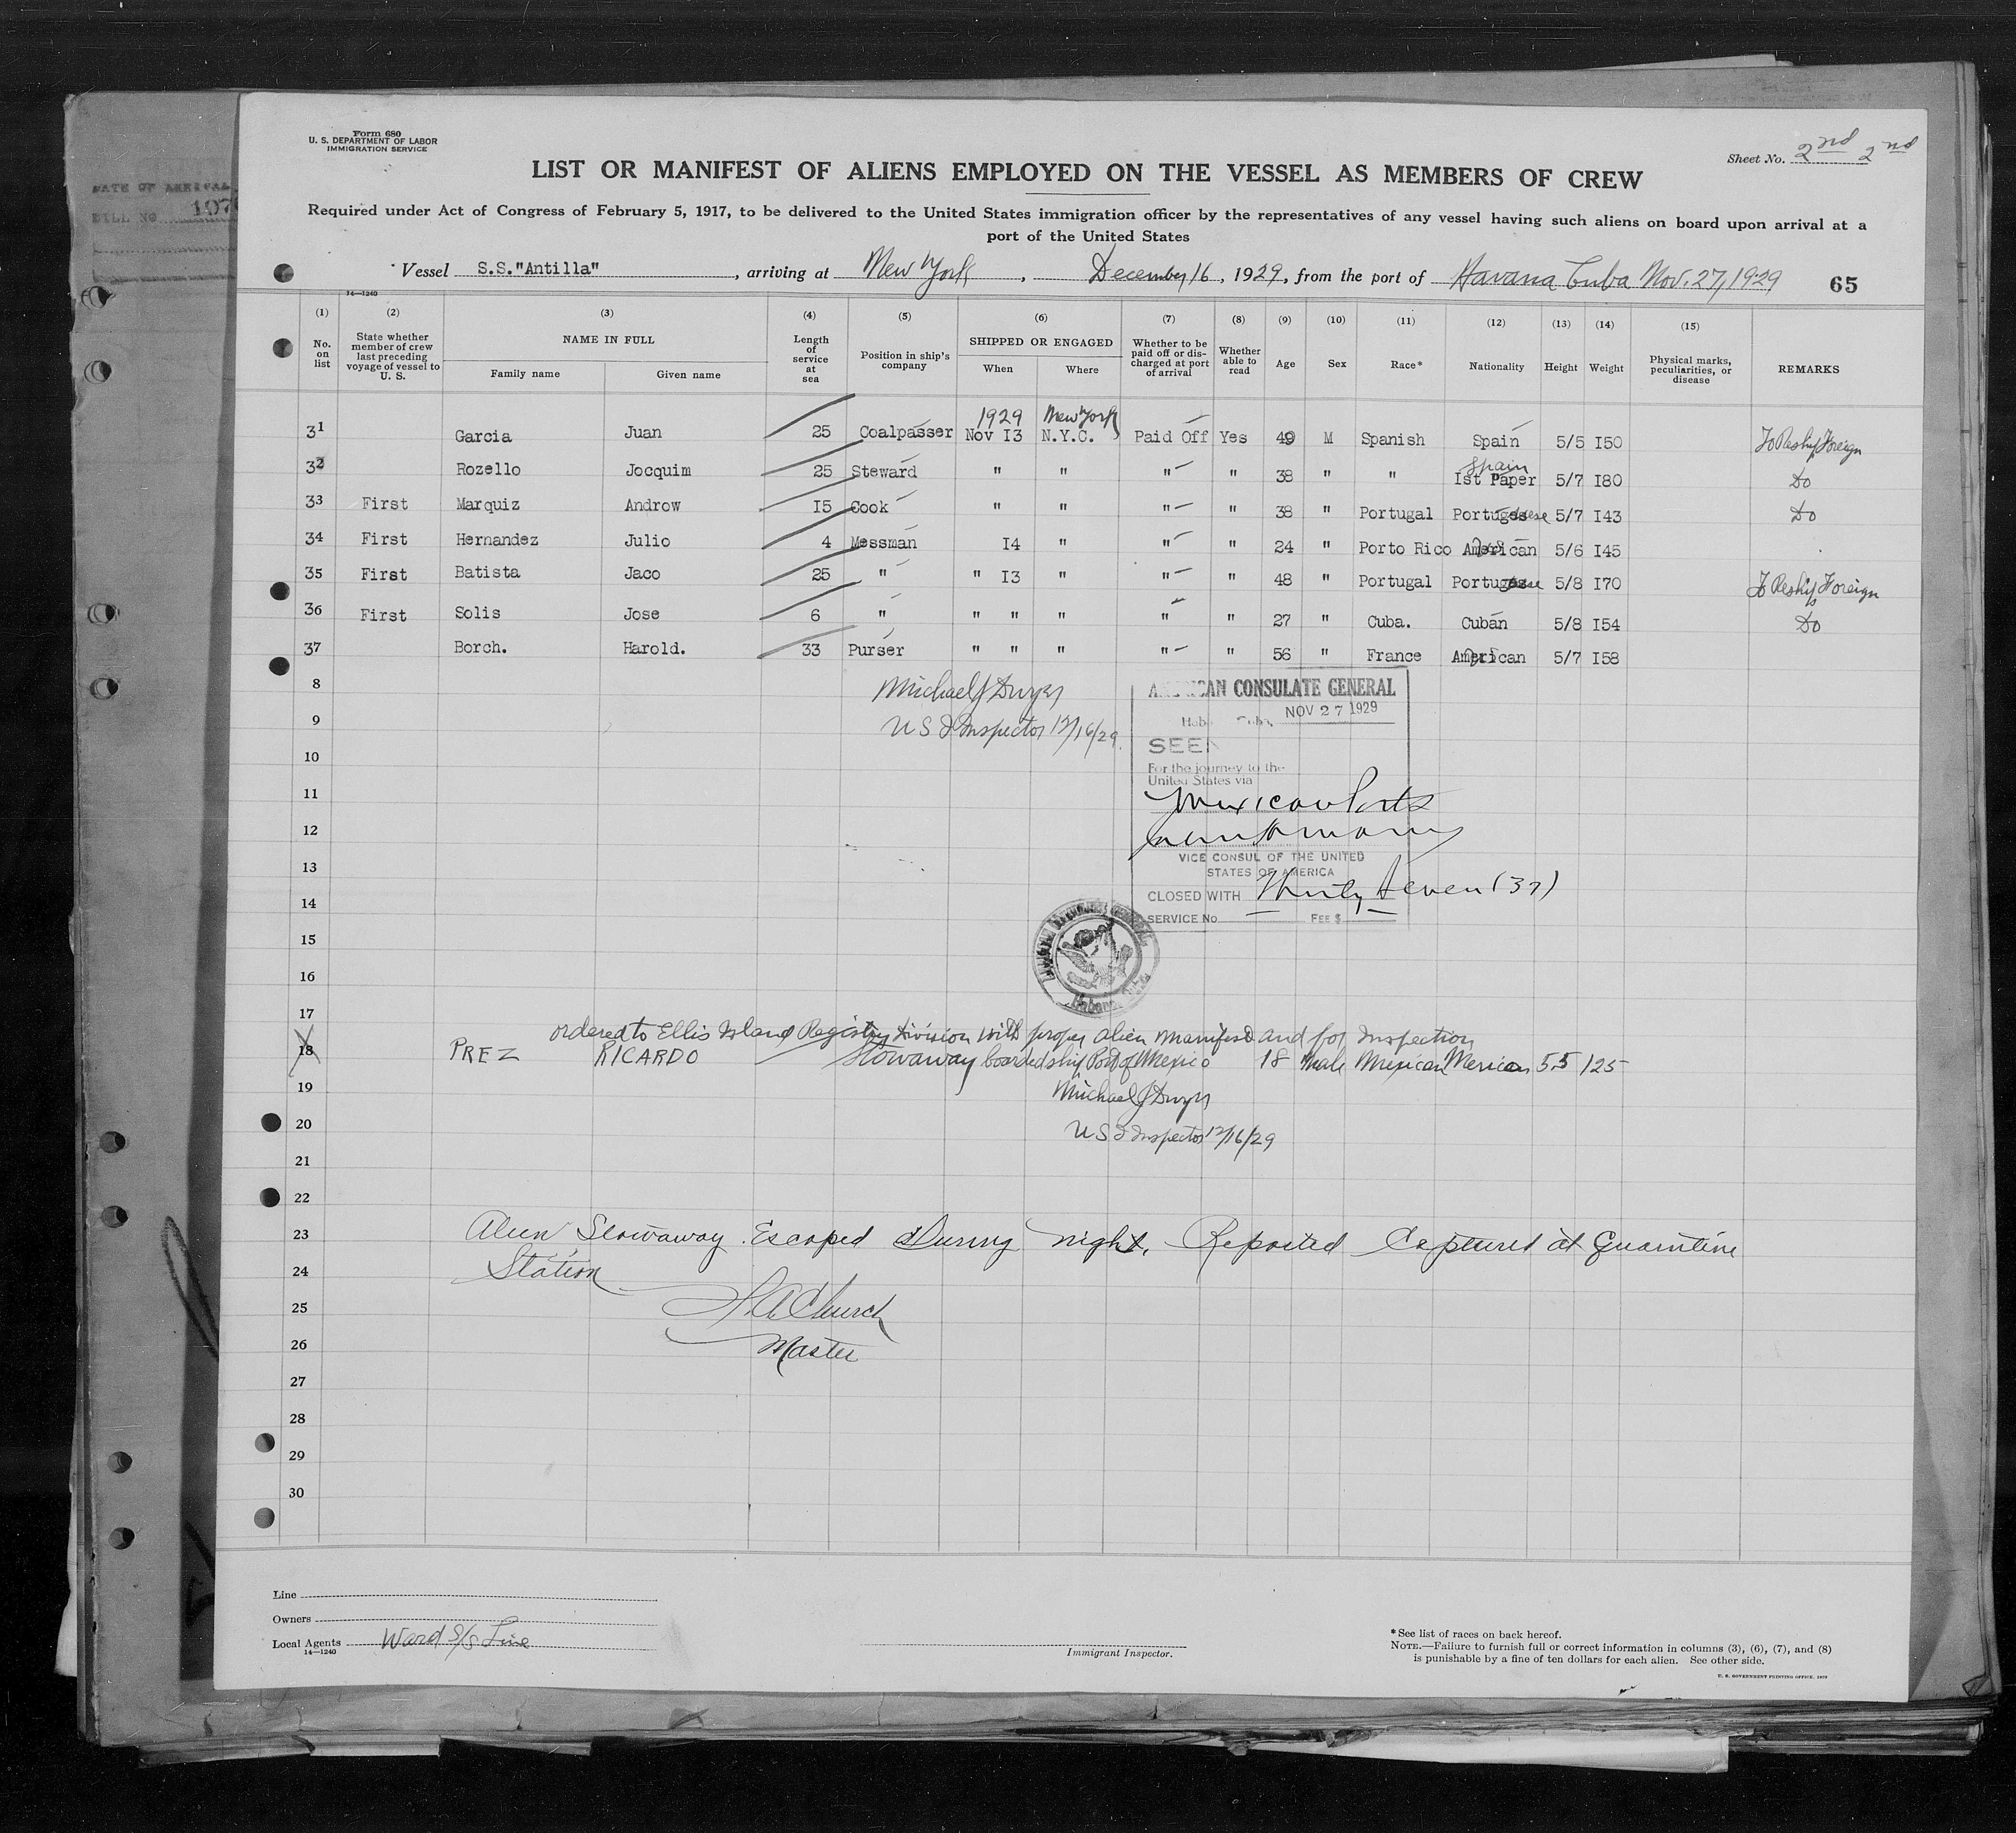 Form 680
U. S. DEPARTMENT OF LABOR
IMMIGRATION SERVICE
Sheet No. 2nd 2nd
LIST OR MANIFEST OF ALIENS EMPLOYED ON THE VESSEL AS MEMBERS OF CREW
Required under Act of Congress of February 5, 1917, to be delivered to the United States immigration officer by the representatives of any vessel having such aliens on board upon arrival at a
port of the United States
DATE OF ARRIVAL
BILL NO. 107
Vessel S.S."Antilla", arriving at New York, December 16, 1929, from the port of Havana Cuba Nov. 27, 1929 65
14—1240
(1) (2) (3) (4) (5) (6) (7) (8) (9) (10) (11) (12) (13) (14) (15)
No. on list
State whether member of crew last preceding voyage of vessel to U. S.
NAME IN FULL
Family name
Given name
Length of service at sea
Position in ship's company
SHIPPED OR ENGAGED
When
Where
Whether to be paid off or discharged at port of arrival
Whether able to read
Age
Sex
Race*
Nationality
Height
Weight
Physical marks, peculiarities, or disease
REMARKS
1929 New York
31 Garcia Juan 25 Coalpasser Nov I3 N.Y.C. Paid Off Yes 49 M Spanish Spain 5/5 I50 To Reship Foreign
Spain
32 Rozello Jocquim 25 Steward " " " " 38 " " Ist Paper 5/7 I80 Do
33 First Marquiz Androw I5 Cook " " " " 38 " Portugal Portuguese 5/7 I43 Do
34 First Hernandez Julio 4 Messman I4 " " " 24 " Porto Rico American 5/6 I45
35 First Batista Jaco 25 " " I3 " " " 48 " Portugal Portuguese 5/8 I70 To Reship Foreign
36 First Solis Jose 6 " " " " " " 27 " Cuba. Cuban 5/8 I54 Do
37 Borch. Harold. 33 Purser " " " " " 56 " France American 5/7 I58
8
Michael J Dwyer
9
U S I Inspector 12/16/29
AMERICAN CONSULATE GENERAL
NOV 27 1929
SEEN
For the journey to the
United States via
Mexican Ports
VICE CONSUL OF THE UNITED
STATES OF AMERICA
CLOSED WITH Thirty Seven (37)
SERVICE No. FEE $
10
11
12
13
14
15
16
17
ordered to Ellis Island Registry Division with proper alien manifest and for inspection
18 PREZ RICARDO Stowaway boarded ship Port of Mexico 18 Male Mexican Mexican 5.5 125
19
Michael J Dwyer
20
U S I Inspector 12/16/29
21
22
23 Alien Stowaway Escaped During night. Reported Captured at Quarintine
24 Station
25
Church
26
Master
27
28
29
30
Line
Owners
Local Agents Ward S/S Line
14—1240
Immigrant Inspector.
*See list of races on back hereof.
NOTE.—Failure to furnish full or correct information in columns (3), (6), (7), and (8)
is punishable by a fine of ten dollars for each alien. See other side.
U. S. GOVERNMENT PRINTING OFFICE